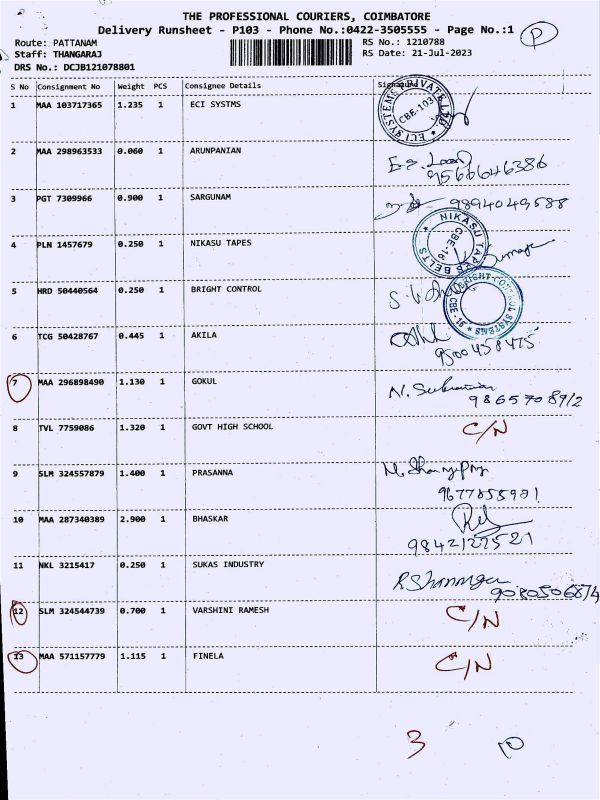 THE PROFESSIONAL COURIERS, COIMBATORE
Delivery Runsheet - P103 - Phone No.:0422-3505555 - Page No.:1
P
Route: PATTANAM
RS No.: 1210788
Staff: THANGARAJ
RS Date: 21-Jul-2023
DRS No.: DCJB121078801
S No Consignment No Weight PCS Consignee Details Signature
1 MAA 103717365 1.235 1 ECI SYSTMS
ECI SYSTEMS PRIVATE LTD CBE-103
2 MAA 298963533 0.060 1 ARUNPANIAN
9566646386
3 PGT 7309966 0.900 1 SARGUNAM
9894049588
4 PLN 1457679 0.250 1 NIKASU TAPES
NIKASU TAPES BELTS CBE-16
5 HRD 50440564 0.250 1 BRIGHT CONTROL
BRIGHT CONTROL SYSTEMS
6 TCG 50428767 0.445 1 AKILA
9500458475
7 MAA 296898490 1.130 1 GOKUL
9865708912
8 TVL 7759086 1.320 1 GOVT HIGH SCHOOL C/N
9 SLM 324557879 1.400 1 PRASANNA
10 MAA 287340389 2.900 1 BHASKAR
9842127521
11 NKL 3215417 0.250 1 SUKAS INDUSTRY
9080506874
12 SLM 324544739 0.700 1 VARSHINI RAMESH C/N
13 MAA 571157779 1.115 1 FINELA C/N
3 10